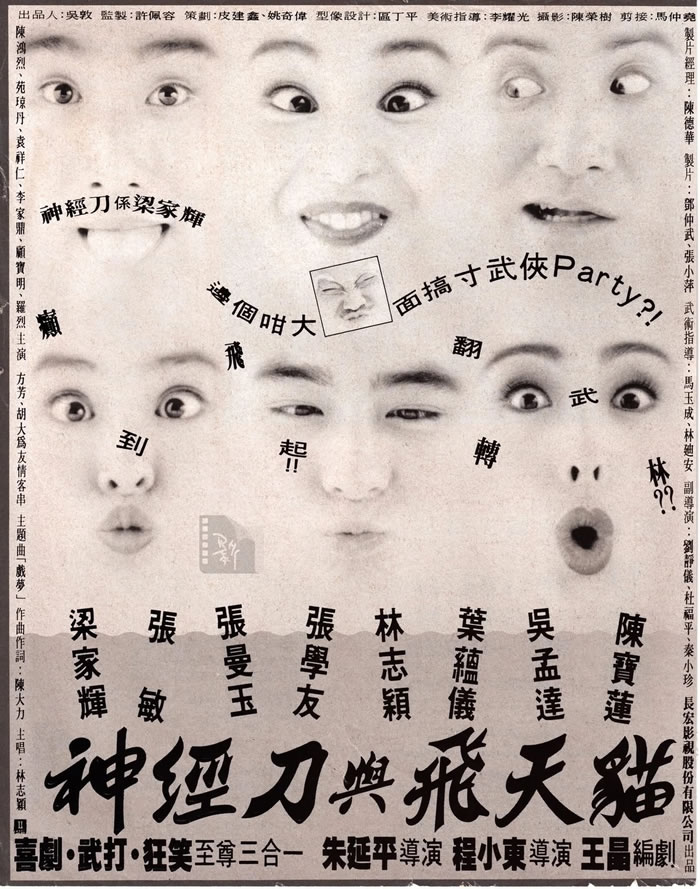 出品人：吳敦 監製：許佩容 策劃：皮建鑫、姚奇偉 型像設計：區丁平 美術指導：李耀光 攝影：陳榮樹 剪接：馬仲堯
陳鴻烈、苑瓊丹、袁祥仁、李家鼎、顧寶明、羅烈主演 方芳、胡大為友情客串 主題曲「戲夢」 作曲作詞：陳大力 主唱：林志穎
製片經理：陳德華 製片：鄧仲武、張小萍 武術指導：馬玉成、林廸安 副導演：劉靜儀、杜福平、秦小珍 長宏影視股份有限公司出品
神經刀係梁家輝
邊個咁大
面搞寸武俠Party?!
癲飛翻武
到起!!轉林??
梁家輝
張敏
張曼玉
張學友
林志穎
葉蘊儀
吳孟達
陳寶蓮
神經刀與飛天貓
喜劇·武打·狂笑至尊三合一 朱延平導演 程小東導演 王晶編劇